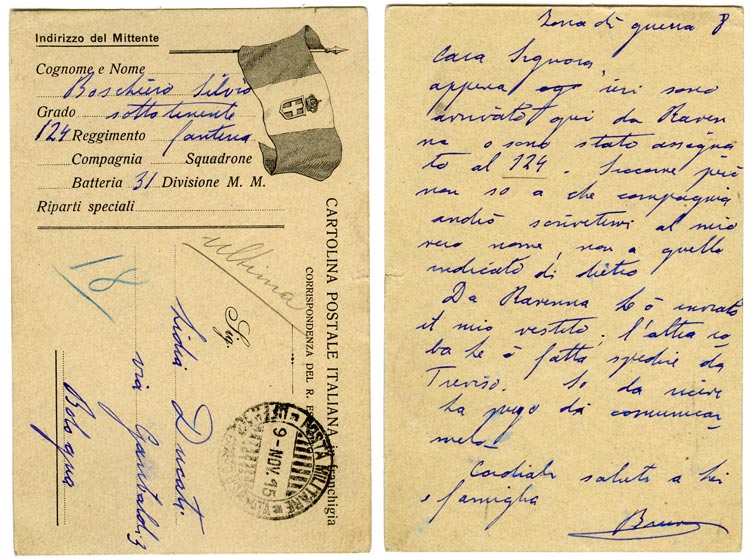 Indirizzo del Mittente
Cognome e Nome
Boschiero Silvio
Grado sottotenente
124 Reggimento fanteria
Compagnia Squadrone
Batteria 31 Divisione M. M.
Riparti speciali
CARTOLINA POSTALE ITALIANA in franchigia
CORRISPONDENZA DEL R. E
ultima
18
Sig.
Lidia Ducati
via Garibaldi 3
Bologna
POSTA MILITARE
9 - NOV. 15
Zona di guerra 8
Cara Signora,
appena ieri sono
arrivato qui da Raven
na e sono stato assegna
to al 124. Siccome però
non so a che compagnia
andrò scrivetemi al mio
vero nome, non a quello
indicato di dietro
Da Ravenna le ò inviato
il mio vestito, l'altra ro
ba le ò fatta spedire da
Treviso. Se da ricevere
la prego di comunicar
melo
Cordiali saluti a Lei
e famiglia
Bruno